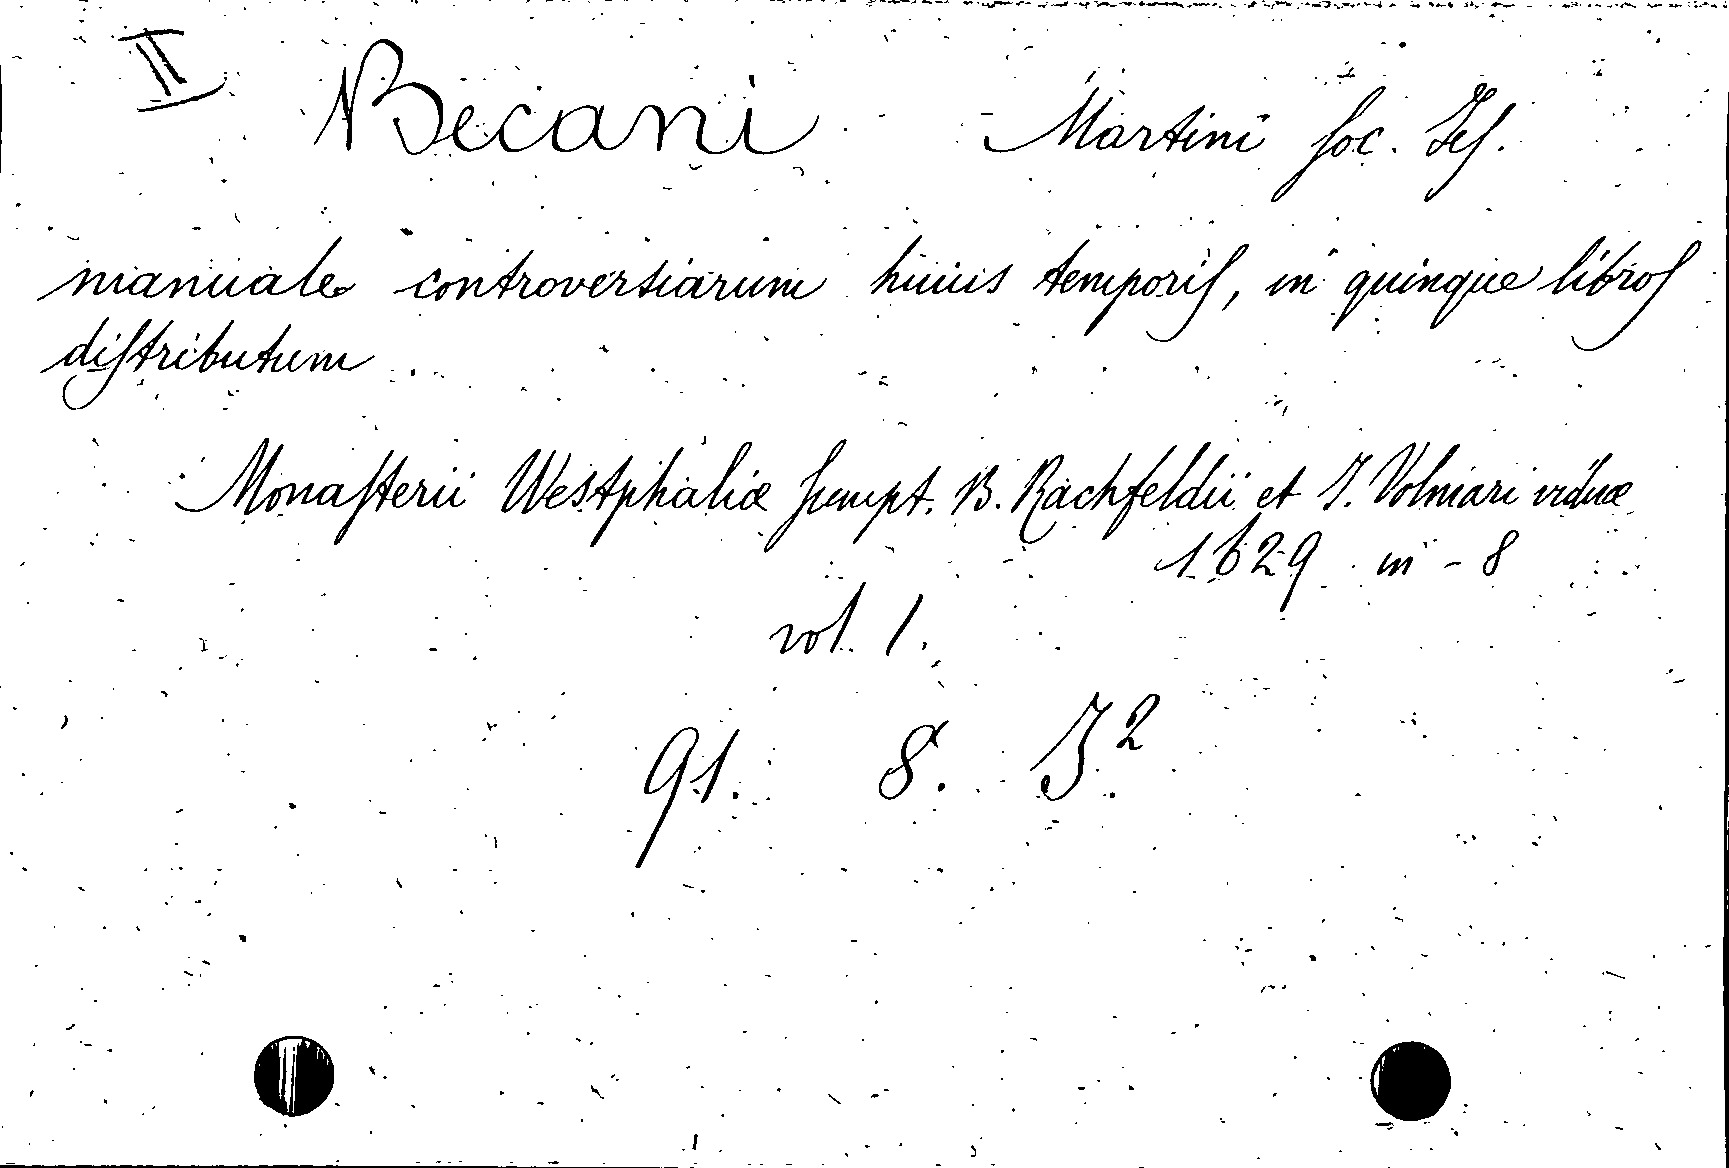 II Becani Martini soc. Jes.
manuale controversiarum huius temporis, in quinque libros
distributum
Monasterii Westphaliæ sumpt. B. Rachfeldii et J. Volmari viduæ
1629 in - 8
vol. 1.
91. 8. J².